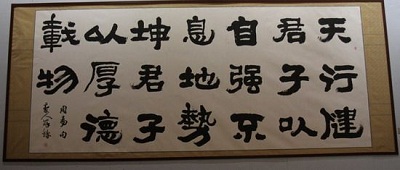 天行健
君子以
自强不
息地勢
坤君子
以厚德
載物
周易句